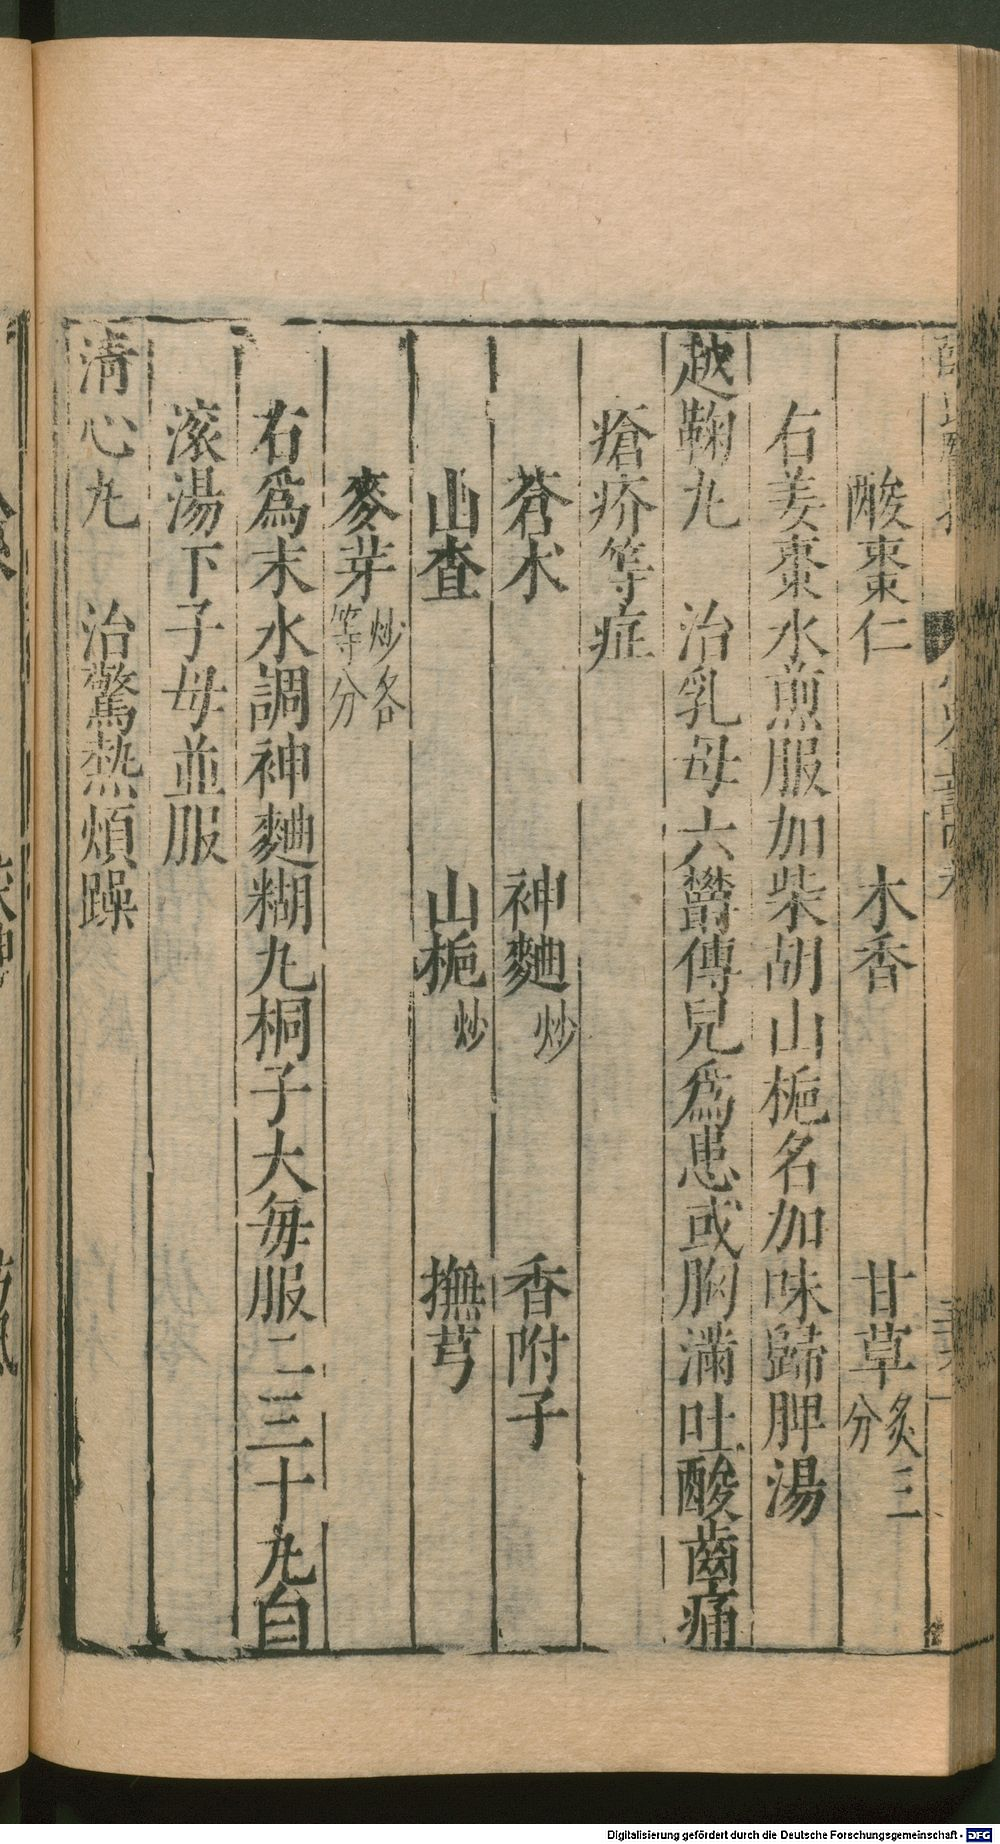 酸棗仁　木香　甘草炙三分
右姜棗水煎服加柴胡山梔名加味歸脾湯
越鞠丸　治乳母六鬱傳兒爲患或胸滿吐酸齒痛
瘡疥等症
蒼朮　神麯炒　香附子
山查　山梔炒　撫芎
麥芽炒各等分
右爲末水調神麯糊丸桐子大每服二三十丸白
滚湯下子母並服
清心丸　治驚熱煩躁
Digitalisierung gefördert durch die Deutsche Forschungsgemeinschaft - DFG